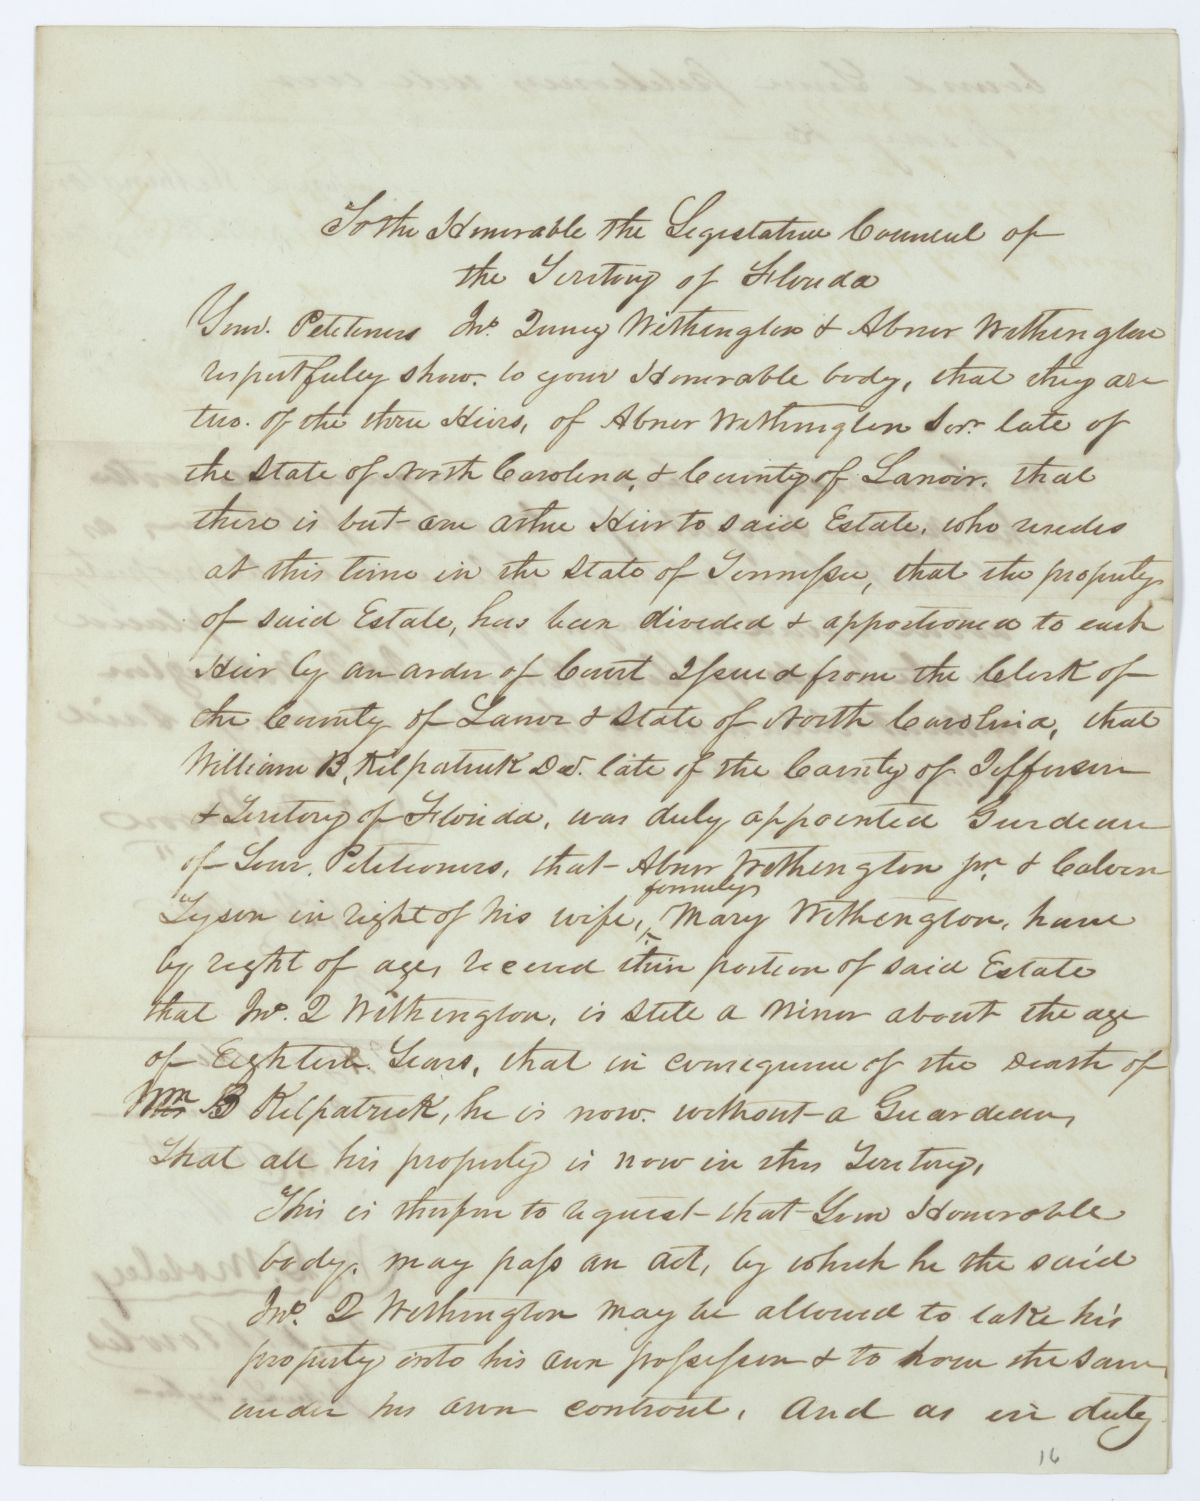 To the Honorable the Legislative Council of
the Territory of Florida
Your. Petitioners Jno. Quincy Withington & Abner Withington
respectfuley show. to your Honorable body, that they are
two. of the three Heirs, of Abner Withington Senr. late of
the State of North Carolina, & County of Lanoir. that
there is but one other Heir to said Estate, who resedes
at this time in the State of Tennessee, that the property
of said Estate, has been divided & apportioned to each
Heir by an order of Court Issued from the Clerk of
the County of Lanor & State of North Carolina, that
William B, Kilpatrick Dcd. late of the County of Jefferson
& Territory of Florida, was duly appointed Gurdean
of Your. Petitioners, that Abner Withington jnr. & Calvin
Tyson in right of his wife, formuly Mary Withington, have
by right of age, receved thier portion of said Estate
that Jno. Q Withington, is stile a Minor about the age
of Eighteen Years, that in consequence of the Death of
Wm B Kilpatrick, he is now. without a Guardean,
That all his property is now in this Territory,
This is therefore to request that Your Honorable
body. may pass an act, by which he the said
Jno. Q Withington may be allowed to take his
property into his own possession & to have the same
under his own controul, And as in duty
16